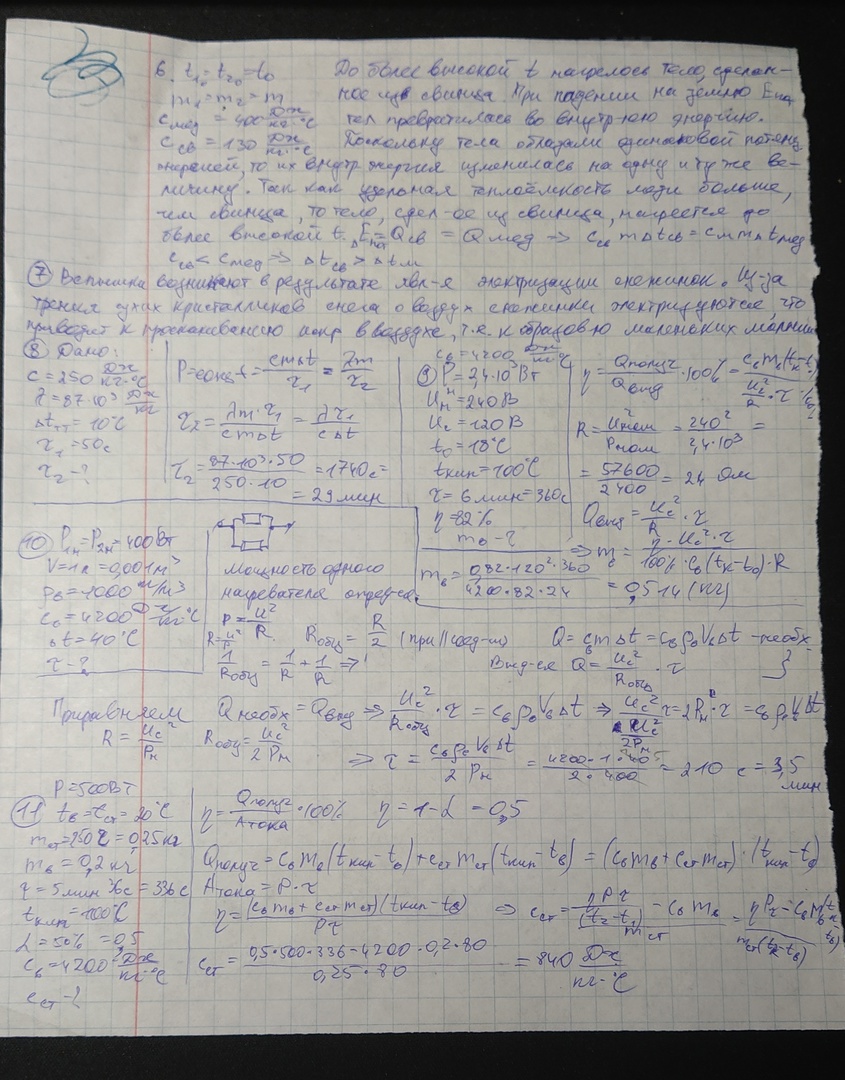 6. t₁₀=t₂₀=t₀
m₁=m₂=m
c_мед = 400 Дж/кг·°C
c_св = 130 Дж/кг·°C
До более высокой t нагрелось тело, сделан-
ное из свинца. При падении на землю E
тел превратилась во внутр-юю энергию.
Поскольку тела обладали одинаковой потенц.
энергией, то их внутр энергия изменилась на одну и ту же ве-
личину. Так как удельная теплоёмкость меди больше,
чем свинца, то тело, сдел-ое из свинца, нагреется до
более высокой t. = Q_св = Q_мед => c_св m Δt_св = c_м m Δt_мед
c_св < c_мед => Δt_св > Δt_м
7 Вспышка возникают в результате явл-я электризации снежинок. Из-за
трения сухих кристалликов снега о воздух снежинки электризуются, что
приводит к проскакиванию искр в воздухе, т.е. к образов-ю маленьких молний
8 Дано:
c=250 Дж/кг·°C
λ=87·10³ Дж/кг
Δt = 10°C
τ₁=50с
τ₂-?
P=const = cmΔt/τ₁ = λm/τ₂
τ₂ = λm·τ₁/cmΔt = λτ₁/cΔt
τ₂ = 87·10³·50/250·10 = 1740с =
= 29 мин
c_в=4200 Дж/кг°C
9 P_н=2,4·10³ Вт
U_н=240В
U_с=120В
t₀=18°C
t_кип=100°C
τ=6 мин=360с
η=82%
m_в-?
η = Q_получ/Q_выд·100% = c_в m_в(t_к-t₀)/(U_с²/R·τ)
R = U²_ном/P_ном = 240²/2,4·10³ =
= 57600/2400 = 24 Ом
Q_выд = U_с²/R·τ
=> m_в = η·U_с²·τ/100%·c_в(t_к-t₀)·R
m_в = 0,82·120²·360/4200·82·24 = 0,514 (кг)
10 P₁н=P₂н=400Вт
V=1л=0,001м³
ρ_в=1000 кг/м³
c_в=4200 Дж/кг°C
Δt=40°C
τ-?
Мощность одного
нагревателя опред-ся
P=U²/R
R=U²/P
R_общ = R/2 (при || соед-и)
1/R_общ = 1/R + 1/R =>
Q=c_в mΔt=c_вρ_вV_вΔt -необх
Выд-ся Q=U_с²/R_общ·τ
Приравняем Q необх = Q выд => U_с²/R_общ·τ = c_вρ_вV_вΔt => U_с²τ/(U_с²/2P_н)=2P_н·τ = c_вρ_вVΔt
R = U_с²/P_н R_общ = U_с²/2P_н
=> τ = c_вρ_вV_вΔt/2P_н = 4200·1·40/2·400 = 210 с = 3,5
мин
P=500Вт
11 t_в=t_ст=20°C
m_ст=250г=0,25кг
m_в=0,2 кг
τ=5мин 36с=336с
t_кип=100°C
L=50%=0,5
c_в=4200 Дж/кг·°C
c_ст-?
η = Q_получ/A_тока·100% η=1-L=0,5
Q_получ=c_вm_в(t_кип-t_в)+c_стm_ст(t_кип-t_в) = (c_вm_в+c_стm_ст)·(t_кип-t_в)
A_тока=P·τ
η = (c_вm_в+c_стm_ст)(t_кип-t_в)/Pτ => c_ст = (ηPτ/(t₂-t₁) - c_вm_в)/m_ст = ηPτ-c_вm_в(t_к-t_в)/m_ст(t_к-t_в)
c_ст = 0,5·500·336-4200·0,2·80/0,25·80 = 840 Дж/кг·°C